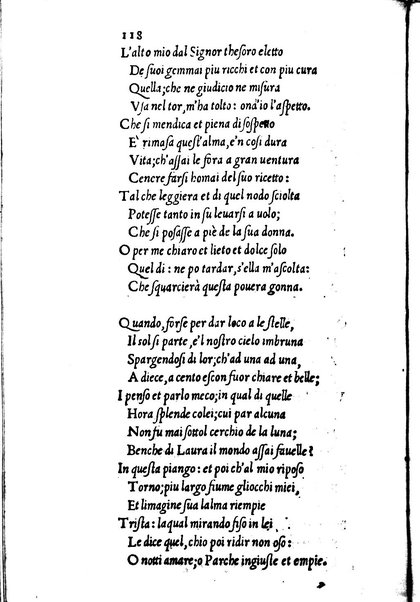 118
L'alto mio dal Signor theſoro eletto
De ſuoi gemmai piu ricchi et con piu cura
Quella; che ne giudicio ne miſura
Vſa nel tor, m'ha tolto: ond'io l'aſpetto.
Che ſi mendica et piena di ſoſpetto
E' rimaſa queſt'alma, e'n coſi dura
Vita; ch'aſſai le fora a gran uentura
Cenere farſi homai del ſuo ricetto:
Tal che leggiera et di quel nodo ſciolta
Poteſſe tanto in ſu leuarſi a uolo;
Che ſi poſaſſe a piè de la ſua donna.
O per me chiaro et lieto et dolce ſolo
Quel di: ne po tardar, s'ella m'aſcolta:
Che ſquarcierà queſta pouera gonna.
Quando, forſe per dar loco a le ſtelle,
Il sol ſi parte, e'l noſtro cielo imbruna
Spargendoſi di lor; ch'ad una ad una,
A diece, a cento eſcon fuor chiare et belle;
I penſo et parlo meco; in qual di quelle
Hora ſplende colei; cui par alcuna
Non fu mai ſottol cerchio de la luna;
Benche di Laura il mondo aſſai fauelle?
In queſta piango: et poi ch'al mio ripoſo
Torno; piu largo fiume gliocchi miei,
Et limagine ſua lalma riempie
Triſta: laqual mirando fiſo in lei
Le dice quel, chio poi ridir non oſo:
O notti amare; o Parche ingiuſte et empie.